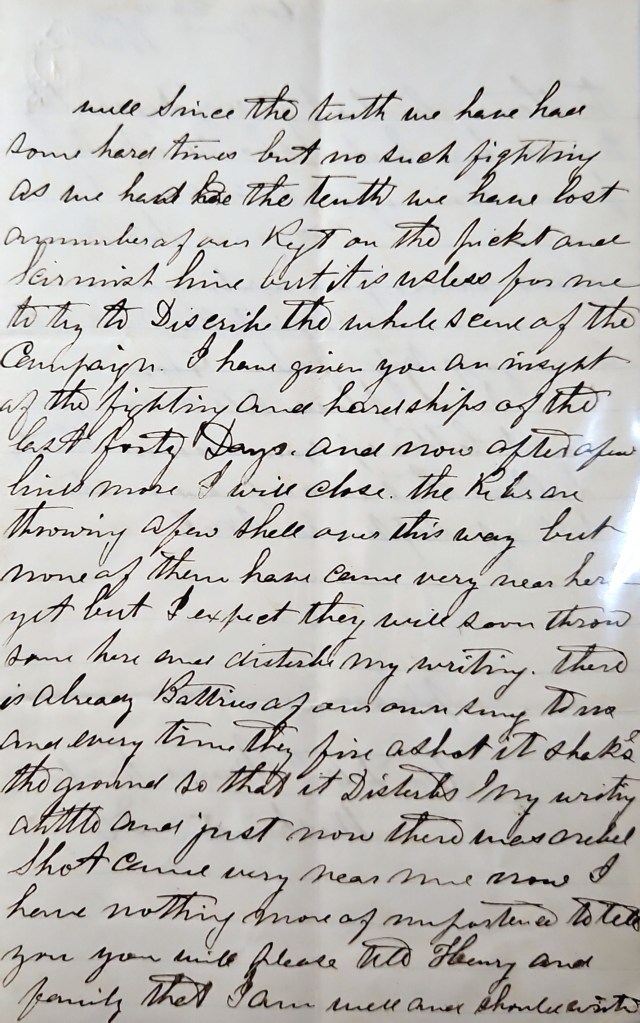 well since the tenth we have had
some hard times but no such fighting
as we had the tenth we have lost
a number of our Regt on the picket and
skirmish line but it is usless for me
to try to Discribe the whole scene of the
Campaign. I have given you an insyht
of the fighting and hardships of the
last forty Days. and now after a few
lines more I will close. the Rebs are
throwing a few shell over this way but
none of them have came very near here
yet but I expect they will soon throw
some here and disterbe my writing. there
is already Battries of our own to us
and every time they fire a shot it shakes
the ground so that it Disterbs my writing
a little and just now there was a rebel
Shot came very near me now I
have nothing more of importence to tell
you you will please tell Henry and
family that I am well and should write